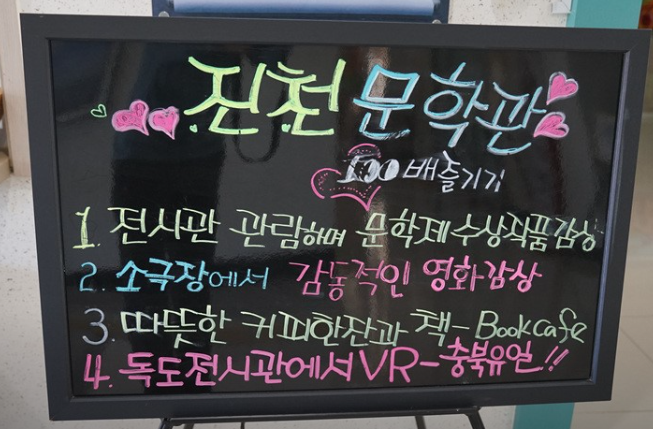 진천 문학관
100배 즐기기
1. 전시관 관람하며 문학제 수상작품감상
2. 소극장에서 감동적인 영화감상
3. 따뜻한 커피한잔과 책- Book cafe
4. 독도전시관에서 VR-충북유일!!